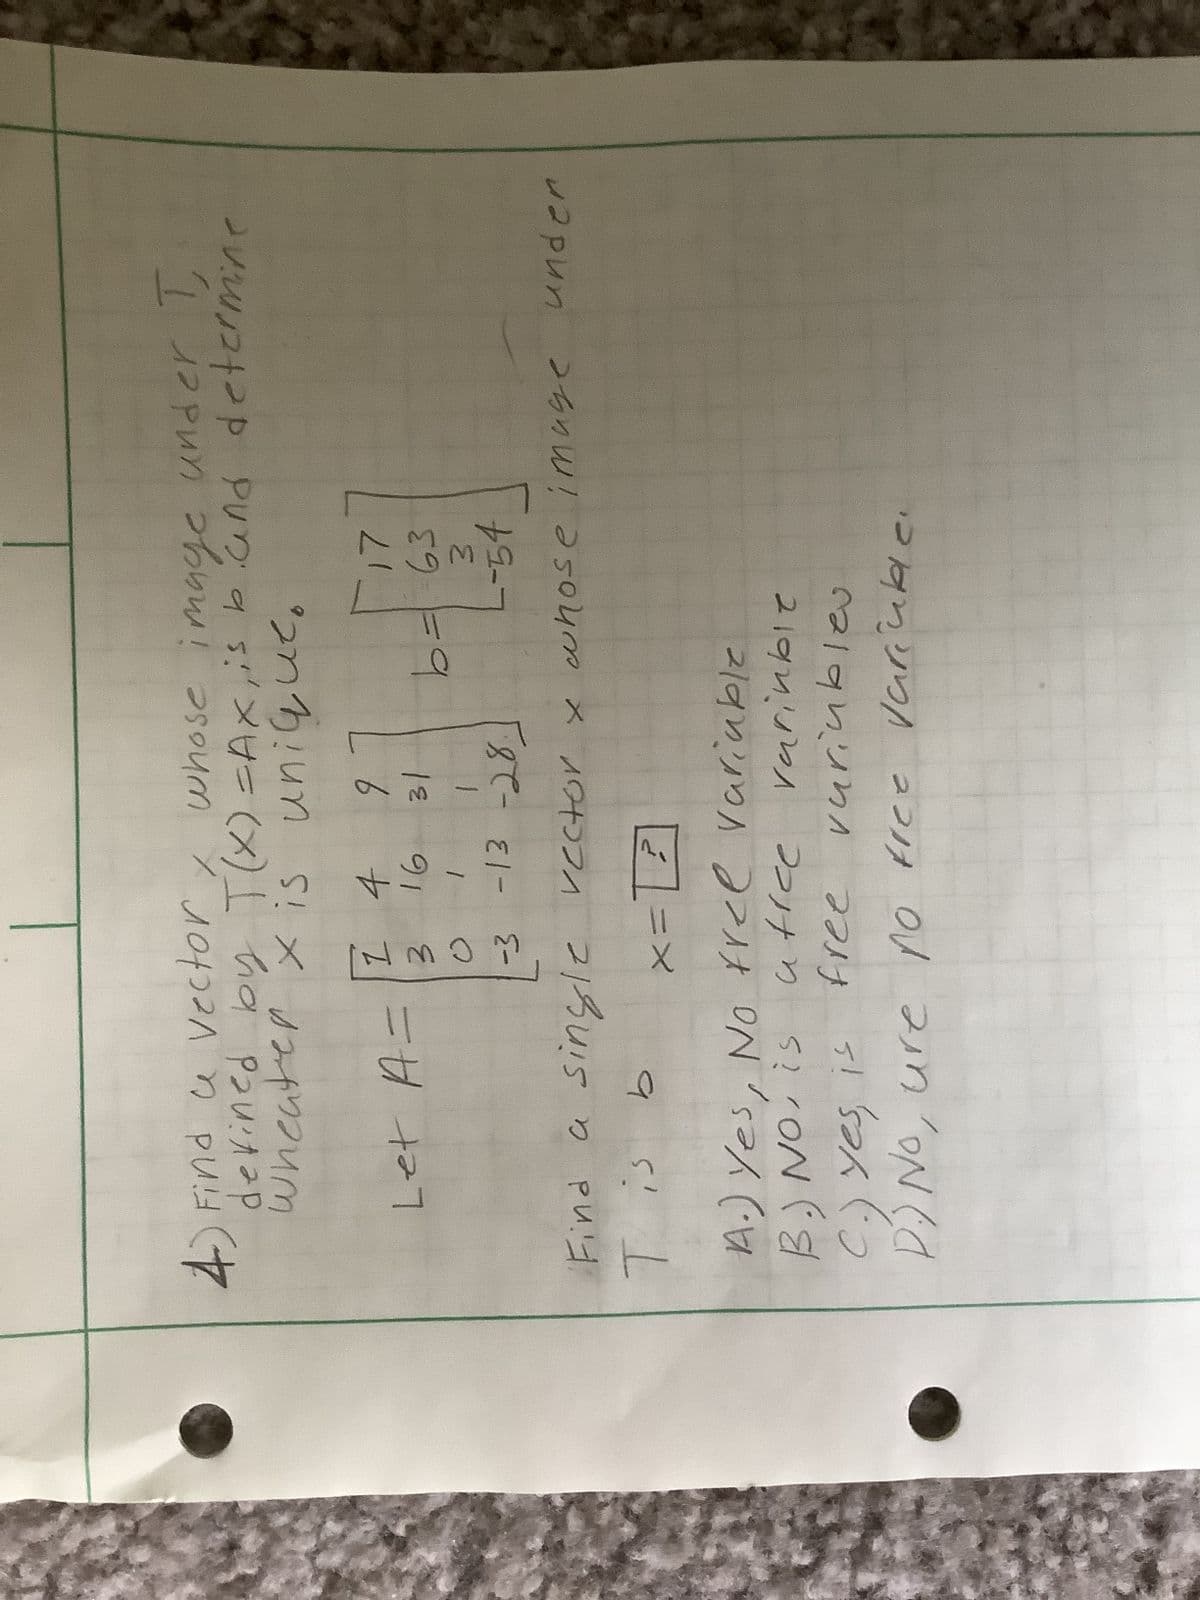 4.) Find a vector x whose image under T,
defined by T(x) = Ax, is b and determine
Wheater x is unique.
Let A = [1 4 9] b = [17]
[3 16 31] [63]
[0 1 1] [3]
[-3 -13 -28] [-54]
Find a single vector x whose image under
T is b x = [?]
A.) Yes, No free variable
B.) NO, is a free variable
C.) yes, is free variables
D.) No, are no free variable.